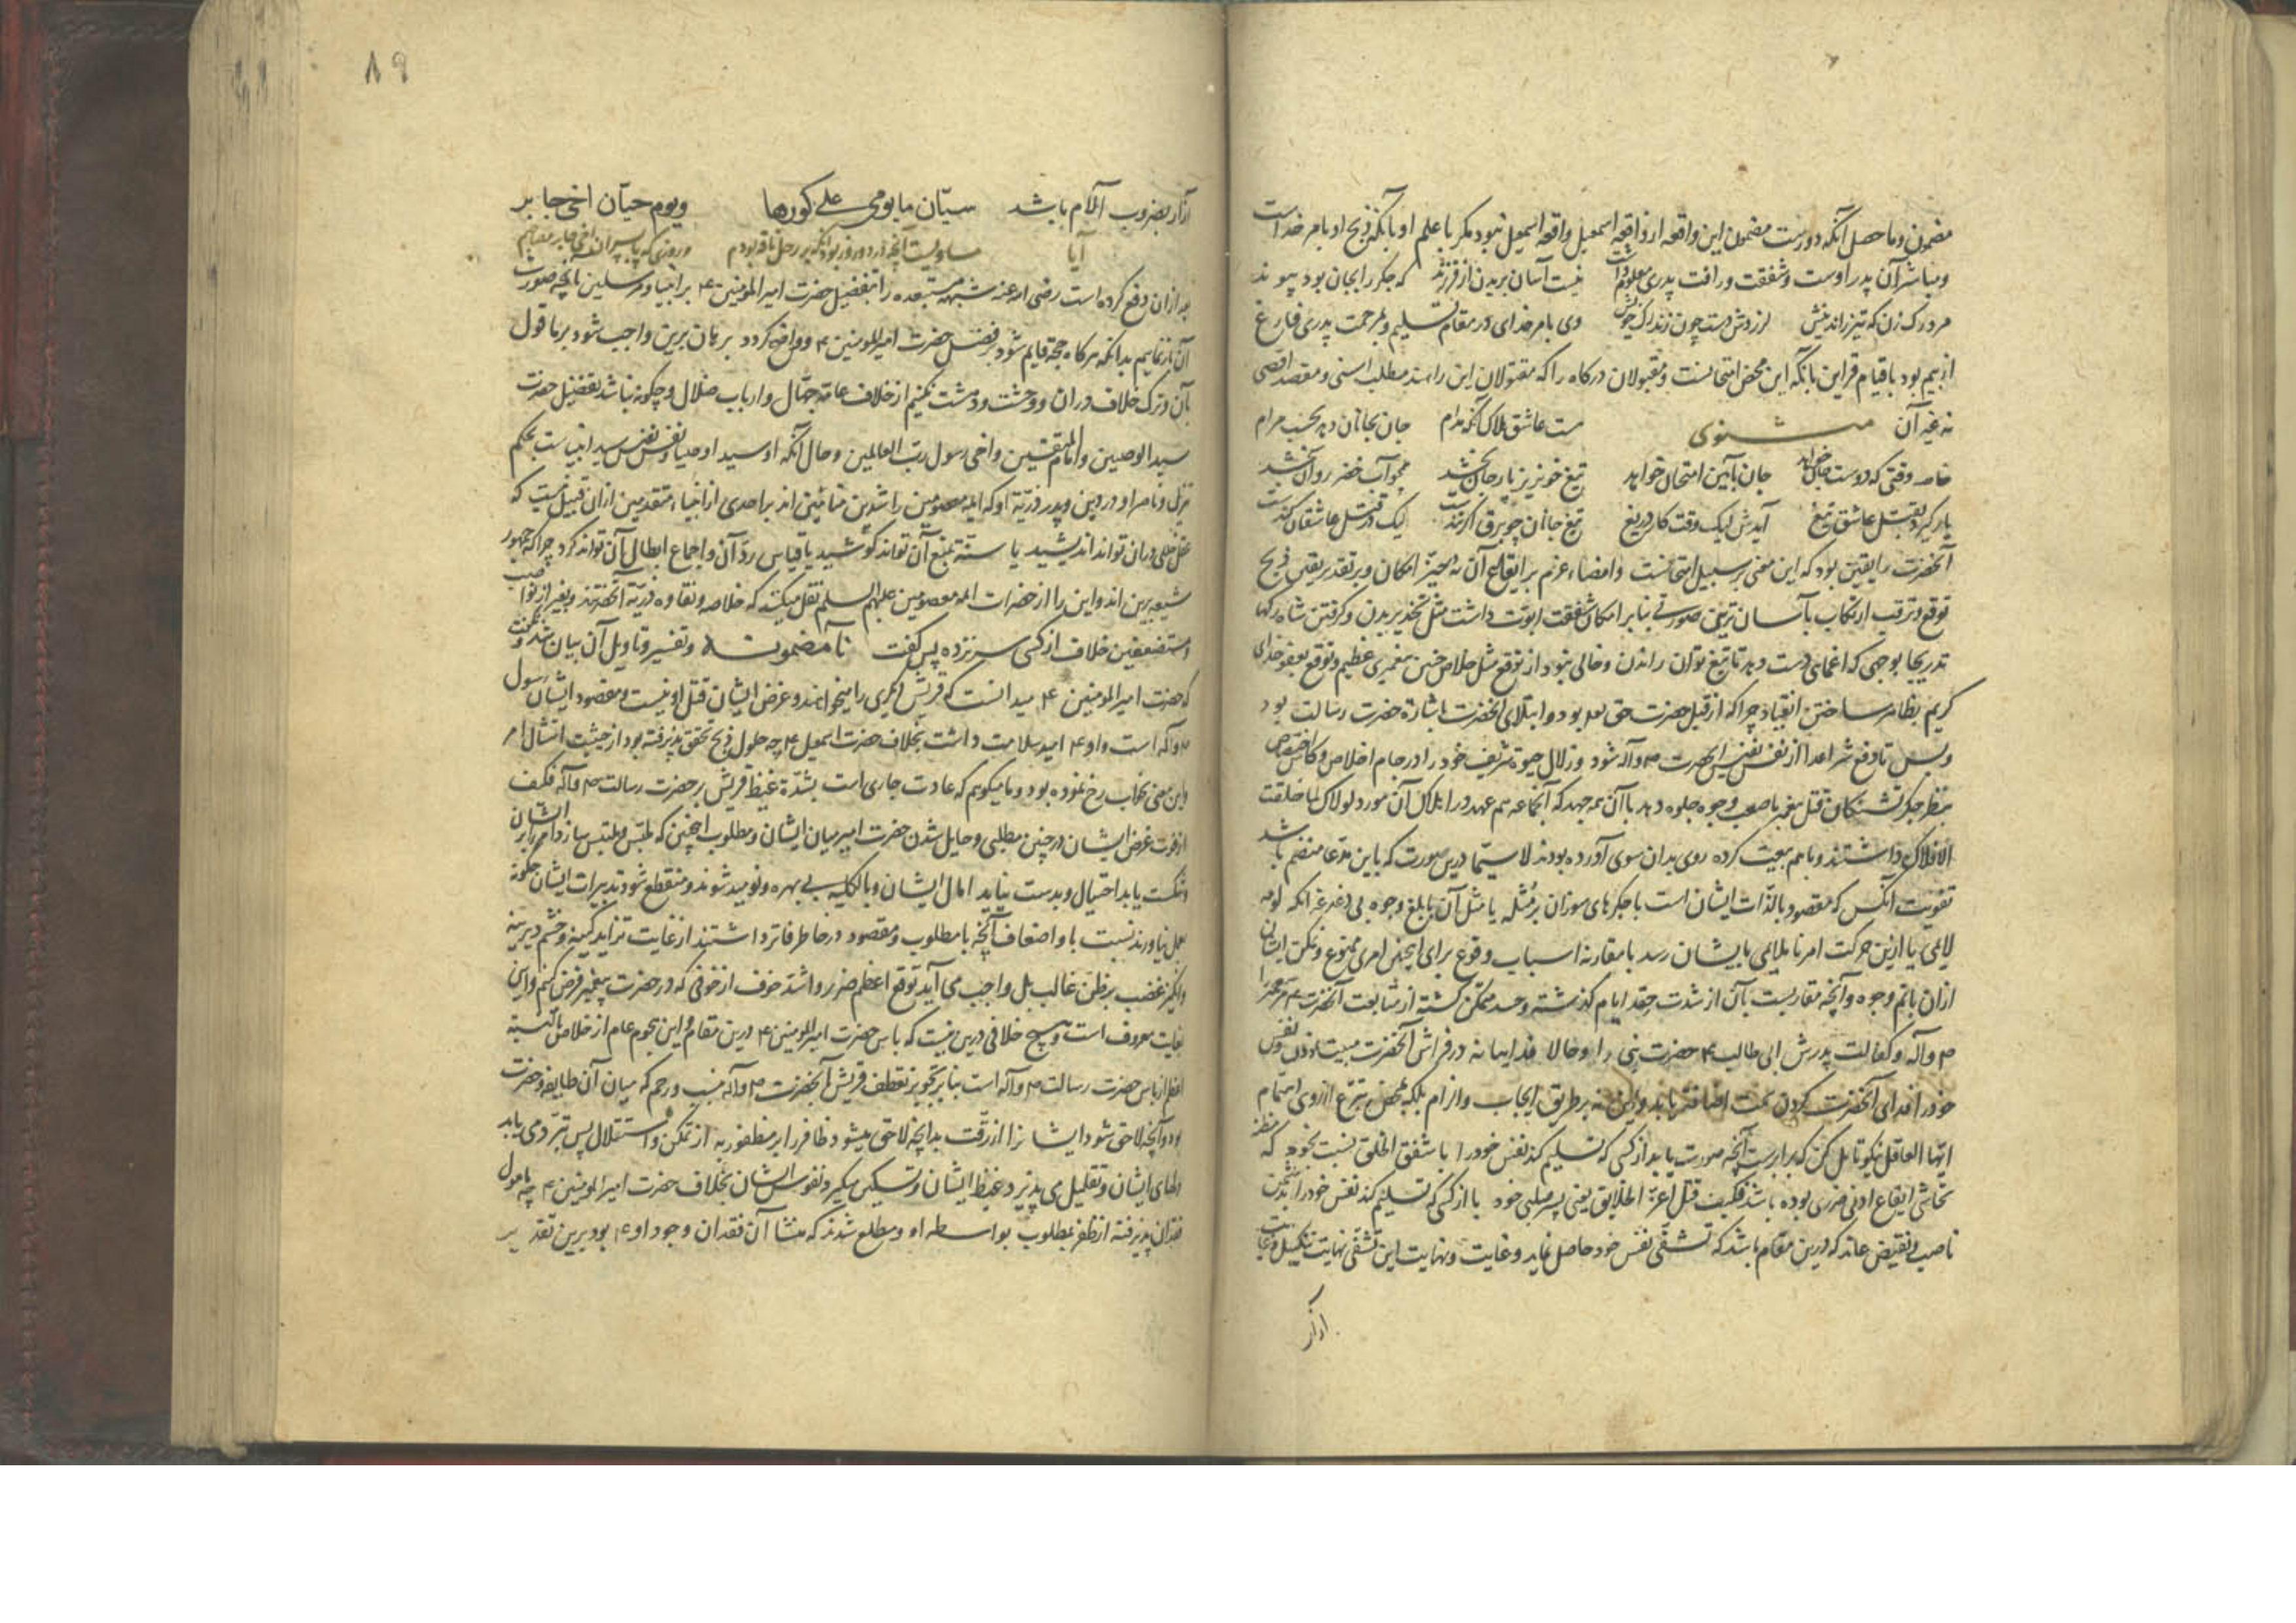 مضمون و ما حصل آنکه دورست مضمون این واقعه از واقعه اسمعیل و واقعه اسمعیل نبود مکر با علم او بانکه ذبح او بامر خداست
و مباشر آن پدر اوست و شفقت و رافت پدری معلوم است نیست آسان بریدن از فرزند که جکر را بجان بود پیوند
مرد رک زن که تیز راند نیش لرزدش دست چون زند رک خویش وی بامر خدای در مقام تسلیم و بمرحمت پدری فارغ
از بیم بود با قیام قراین بانکه این محض امتحانست و مقبولان درکاه را که مقتولان این راهند مطلب اسنی و مقصد اقصی
نه غیر آن مثنوی هست عاشق هلاک آنکه مدام جان بجانان دهد بحسب مرام
خاصه وقتی که دوست جان خواهد جان بآیین امتحان خواهد تیغ خونریز یار جان بخشد همچو آب خضر روان بخشد
یار کیرد بقتل عاشق تیغ آیدش لیک وقت کار دریغ تیغ جانان چو برق اکر تندست لیک در قتل عاشقان کندست
آنحضرت را یقین بود که این معنی بر سبیل امتحانست و امضاء عزم بر ایقاع آن نه بحیز امکان و بر تقدیر یقین ذبح
توقع و ترقب ارتکاب بآسان ترین صورتی بنابر امکان شفقت ابوت داشت مثل تخدیر بدن و کرفتن شاه رکها
تدریجا بوجهی که اغمایی دست دهد تا تیغ توان راندن و خالی نبود از توقع مثل خلاص چنین پیغمبری عظیم و توقع بعفو خدای
کریم بظاهر ساختن انقیاد چرا که از قبل حضرت حق بود و ابتلای آنحضرت باشارة حضرت رسالت بود
و بس تا دفع شر اعدا از نفس نفیس آنحضرت ص و آله شود و زلال حیوة شریف خود را در جام اخلاص و کاس اختصاص
بنظر جکر تشنکان قتل پیغمبر باصعب وجوه جلوه دهد با آن همه جهد که آنجماعه هم عهد در اهلاک آن مورد لولاک لما خلقت
الافلاک داشتند و باهم بیعت کرده روی بدان سوی آورده بودند لا سیما درین صورت که باین مدعا منضم باشد
تفویت آنکس که مقصود بالذات ایشان است با جکرهای سوزان بر مثله یا مثل آن بابلغ وجوه بی دغدغه آنکه لومه
لایمی یا ازین حرکت امر ناملایمی بایشان رسد با مقارنه اسباب وقوع برای اینچنین امری ممنوع و تمکن ایشان
ازان باتم وجوه و آنچه مقاربست بآن از شدت حقد ایام کذشته و حسد متمکن کشته از متابعت آنحضرت
ص و آله و کفالت پدرش ابی طالب ع حضرت نبی را و حالا فداییانه در فراش آنحضرت مبیت و نفس
خود را فدای آنحضرت کردن اضافه باید و این نه بر طریق ایجاب و الزام بلکه بمحض تبرع از روی اهتمام
ایها العاقل نیکو تامل کن که برابرست آنچه صورت یابد از کسی که تسلیم کند نفس خود را با شفق الخلق نسبت بخود که
تحاشی ایقاع ادنی ضرری بوده باشد فکیف قتل اعزة الخلایق یعنی پسر صلبی خود با از کسی که تسلیم کند نفس خود را
ناصب و نقیض عاند که درین مقام باشد که تشفی نفس خود حاصل نماید و غایت و نهایت این تشفی نهایت تنکیل و
ازار
۸۹
ازار بضروب آلام باشد سیان ما یومی علی کورها و یوم حیان اخی جابر
آیا مساویست آنچه در دو روز بود آنکه بر رحل ناقه بودم و روزی که با حیان اخی جابر
بعد ازان دفع کرده است رضی الله عنه شبهه مستبعده را تفضیل حضرت امیر المومنین ع بر انبیا و مرسلین بآنچه صورت
آن باز نماییم بدانکه هرکاه حجة قایم شود بر فضل حضرت امیر المومنین ع و واضح کردد برهان برین واجب شود بر ما قول
بآن و ترک خلاف دران و وحشت و دهشت نکنیم از خلاف عامه جهال و ارباب ضلال و چکونه نباشد تفضیل حضرت
سید الوصیین و امام المتقین و اخی رسول رب العالمین و حال آنکه او سید اوصیا و نفس نفیس سید انبیاست بحکم
تنزیل و ناصر او در دین و پدر ذریة او که ایمه معصومین راشدین بر احدی از انبیاء متقدمین ازان قبیل نیست که
عقل خللی دران تواند اندیشید یا سنة بمنع آن تواند کوشید یا قیاس رد آن و اجماع ابطال آن تواند کرد چرا که جمهور
شیعه برین اند و این را از حضرات ایمه معصومین علیهم السلم نقل میکنند که خلاصه و نقاوه ذریة آنحضرتند و بغیر از نواصب
و مستضعفین خلاف از کسی سر نزده پس کفت نآ مضمونش و تفسیر و تاویل آن بیان شد
که حضرت امیر المومنین ع میدانست که قریش دیکری را میخواهند و غرض ایشان قتل او نیست و مقصود ایشان رسول
ص و آله است و او ع امید سلامت داشت بخلاف حضرت اسمعیل ع چه حلول ذبح تحقق پذیرفته بود از حیثیت امتثال امر
و این معنی بخاب رخ نموده بود و ما میکوییم که عادت جاری است بشدة غیظ قریش بر حضرت رسالت ص و آله فکیف
از فوت غرض ایشان در چنین مطلبی و حایل شدن حضرت امیر میان ایشان و مطلوب اینچنین که ملبس و ملتبس سازد امر را بر ایشان
و شکست یابد احتیال و بدست نیاید امال ایشان و بالکلیه بی بهره و نومید شوند و منقطع شود تدبیرات ایشان چکونه
بعمل نیاورند نسبت باو اضعاف آنچه با مطلوب و مقصود در خاطر فاتر داشتند از غایت تزاید کینه و خشم دیرینه
و انکیز غضب بر ظن غالب بل واجب می آید توقع اعظم ضرر و اشد خوف از خوفی که در حضرت پیغمبر فرض کنم و این
بغایت معروف است و هیچ خلافی درین نیست که یاس حضرت امیر المومنین ع درین مقام و این هجوم عام از خلاص بالنسبة
اعظم از یاس حضرت رسالت ص و آله است بنابر تجویز تعطف قریش بآنحضرت ص و آله بنسب و رحم که میان آن طایفه و حضرت
بود و آنچه لاحق شود ایشانرا از رقت بدانچه لاحق میشود ظافر را بر مظفور به از تمکن و استقلال پس تبرد می یابد
دلهای ایشان و تقلیل می پذیرد غیظ ایشان و تسکین میکیرد نفوس ایشان بخلاف حضرت امیر المومنین ع چه مامول
فقدان پذیرفته از ظفر بمطلوب بواسطه او و مطلع شدند که منشا آن فقدان وجود او ع بود برین تقدیر